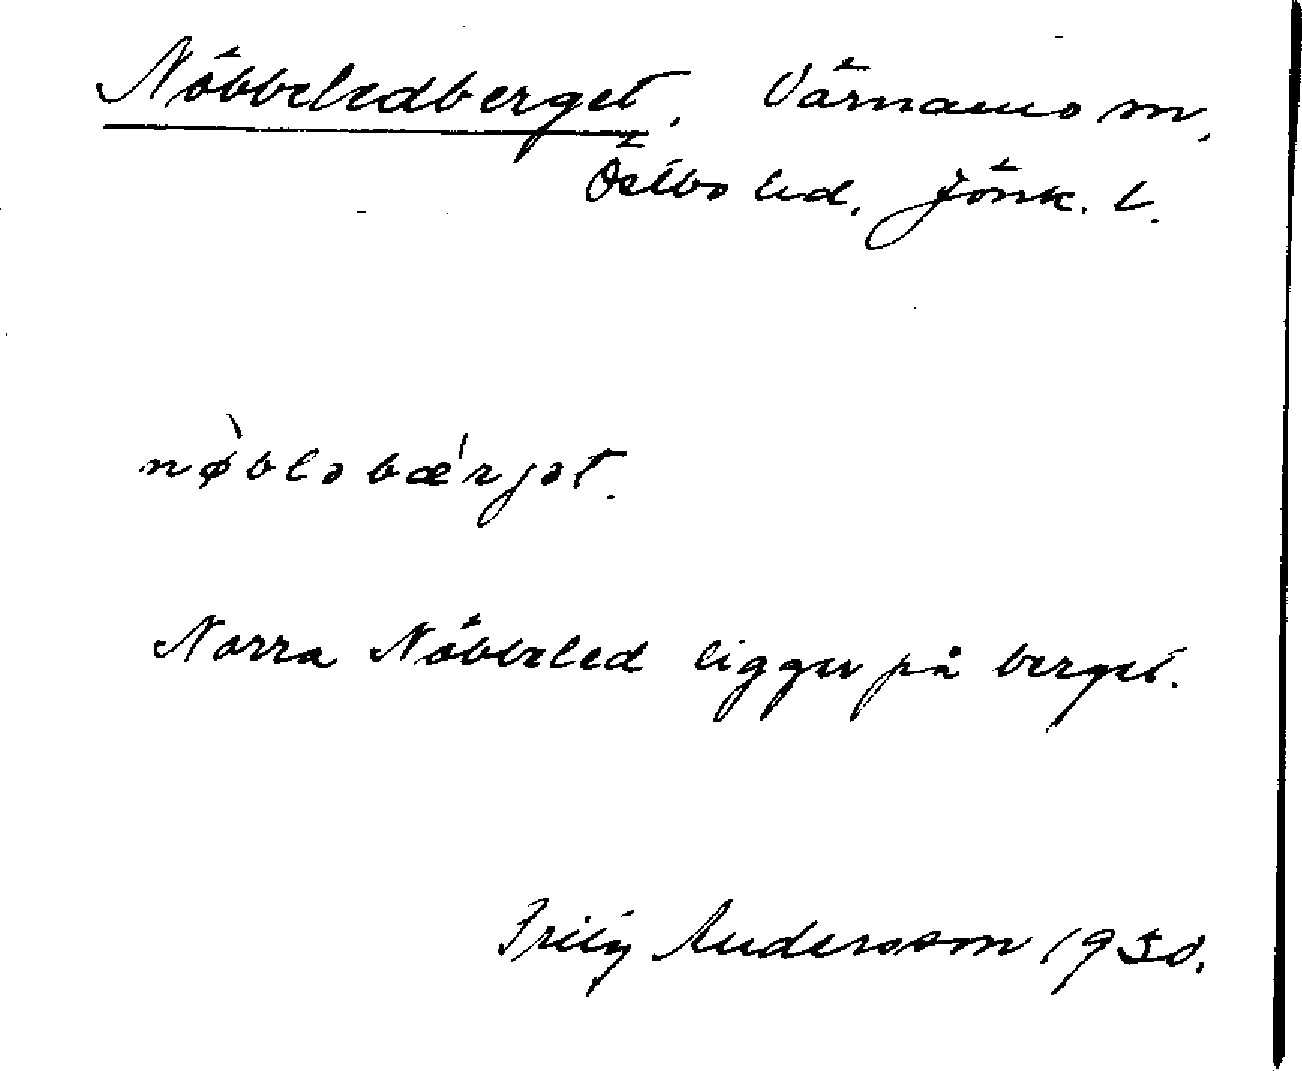 Nöbbeledberget. Värnamo sn,
Östbo hd. Jönk. l.
nø̀bləbæ'rjət.
Norra Nöbbeled ligger på berget.
Fritz Andersson 1930.